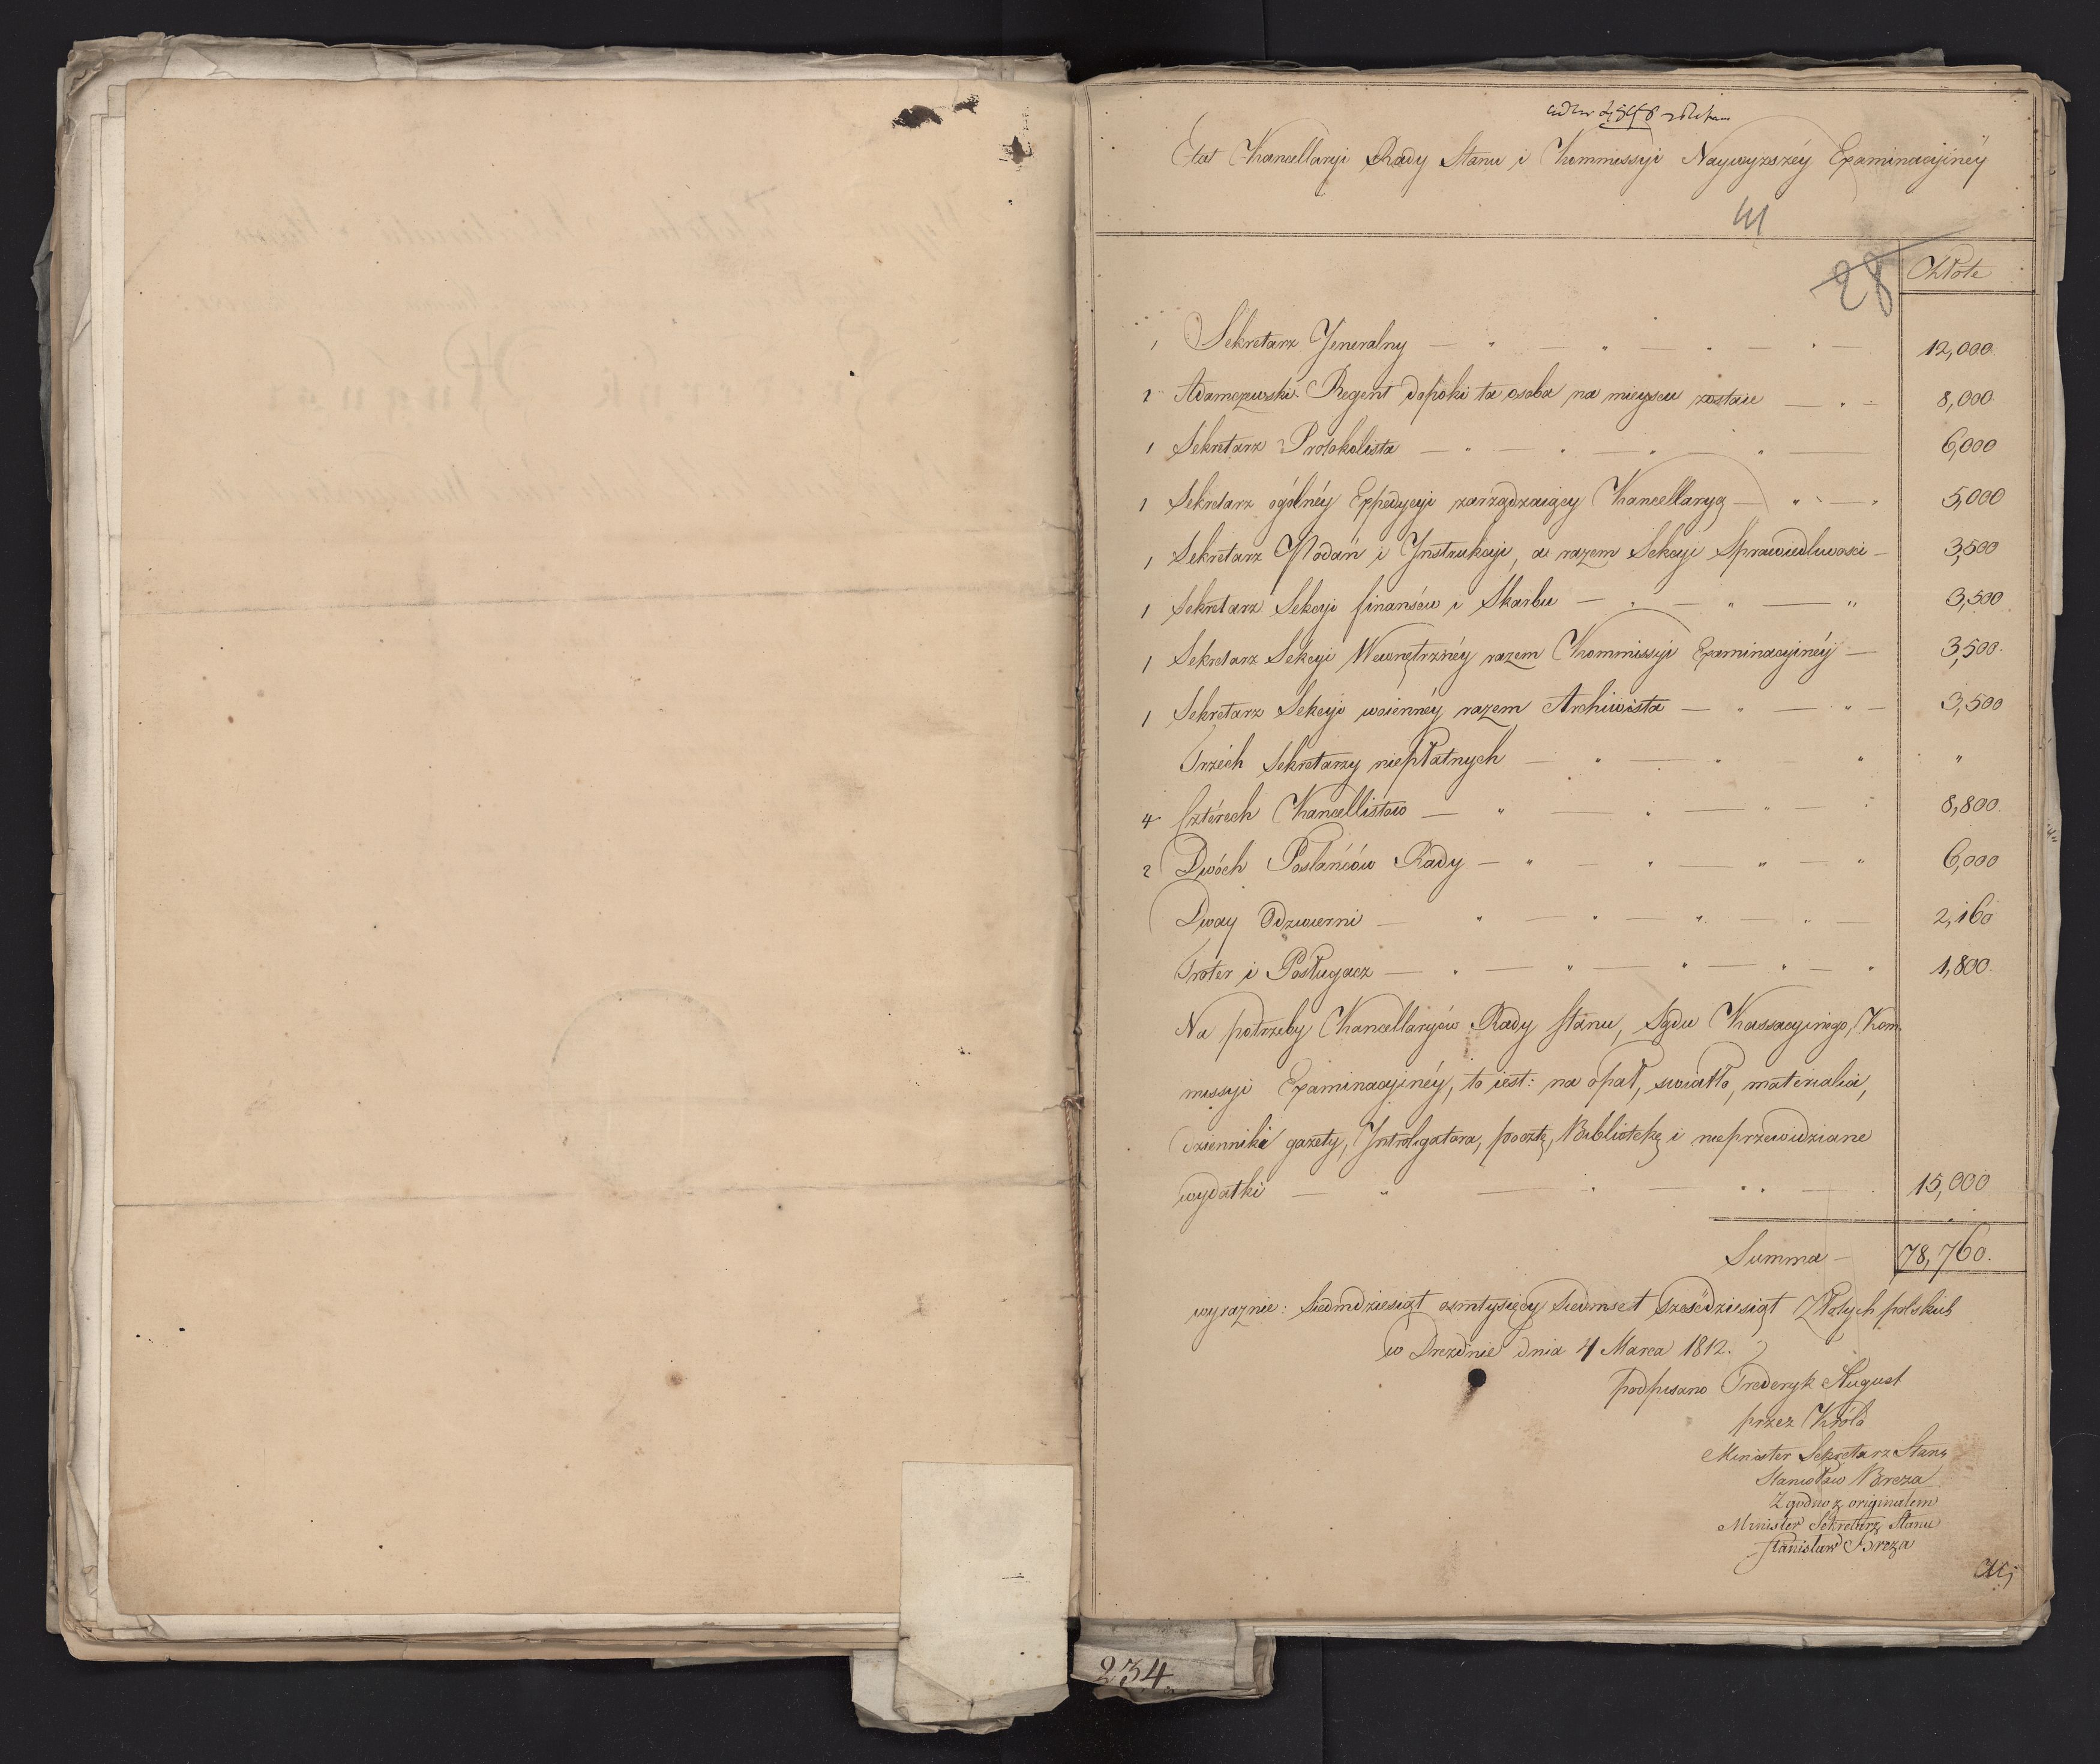 Etat Kancellaryi Rady Stanu i Kommissyi Naywyzszéy Examinacyinéy
41
28
Złote
1 Sekretarz Jeneralny — „ — „ — „ — „ — 12,000.
1 Adamczewski Regent dopoki ta osoba na mieyscu zostaie — „ — 8,000
1 Sekretarz Protokolista — „ — „ — „ — „ — 6,000
1 Sekretarz ogólnéy Expedycyi zarządzaiący Kancellaryą — „ — „ 5,000
1 Sekretarz Podań i Jnstrukcyi, a razem Sekcyi Sprawiedliwosci — 3,500
1 Sekretarz Sekcyi finansów i Skarbu — „ — „ — „ 3,500
1 Sekretarz Sekcyi Wewnętrznéy razem Kommissyi Examinacyinéy — 3,500.
1 Sekretarz Sekcyi woiennéy razem Archiwista — „ — „ — 3,500
Trzéch Sekretarzy niepłatnych — „ — „ — „ „
4 Cztérech Kancellistow — „ — „ — „ — 8,800.
2 Dwóch Posłańców Rady — „ — „ — „ — „ 6,000
Dway Odzwierni — „ — „ — „ — „ — 2,160
Froter i Posługacz — „ — „ — „ — „ — „ 1,800.
Na potrzeby Kancellaryów Rady stanu, Sądu Kassacyinego, Kom-
missyi Examinacyinéy, to iest: na opał, swiatło, materialia,
dzienniki gazety, Jntroligatora, pocztę, Bibliotekę i nieprzewidziane
wydatki — „ — „ — „ „ — 15,000
Summa — 78,760.
wyraznie: Siedmdziesiąt osmtysięcy siedmset szesćdziesiąt Złotych polskich
w Dreznie dnia 4 Marca 1812.
podpisano Frederyk August
przez Króla
Minister Sekretarz Stanu
Stanisław Breza
Zgodno z originałem
Minister Sekretarz Stanu
Stanisław Breza
234.